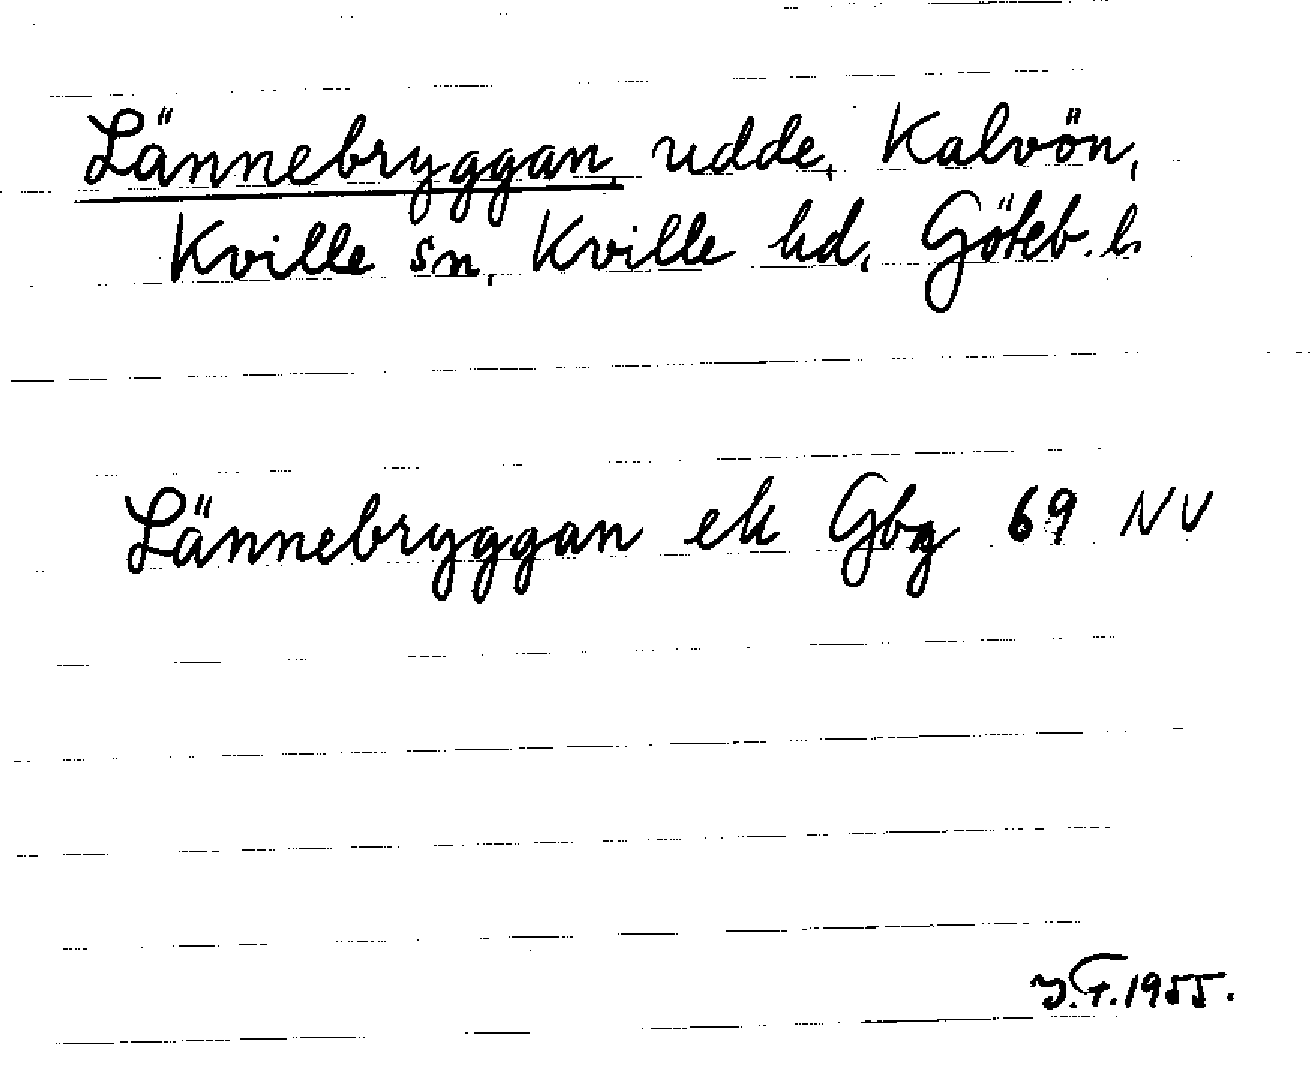 Lännebryggan, udde, Kalvön,
Kville sn, Kville hd, Göteb. l.
Lännebryggan ek Gbg 69 NV
J.F. 1955.